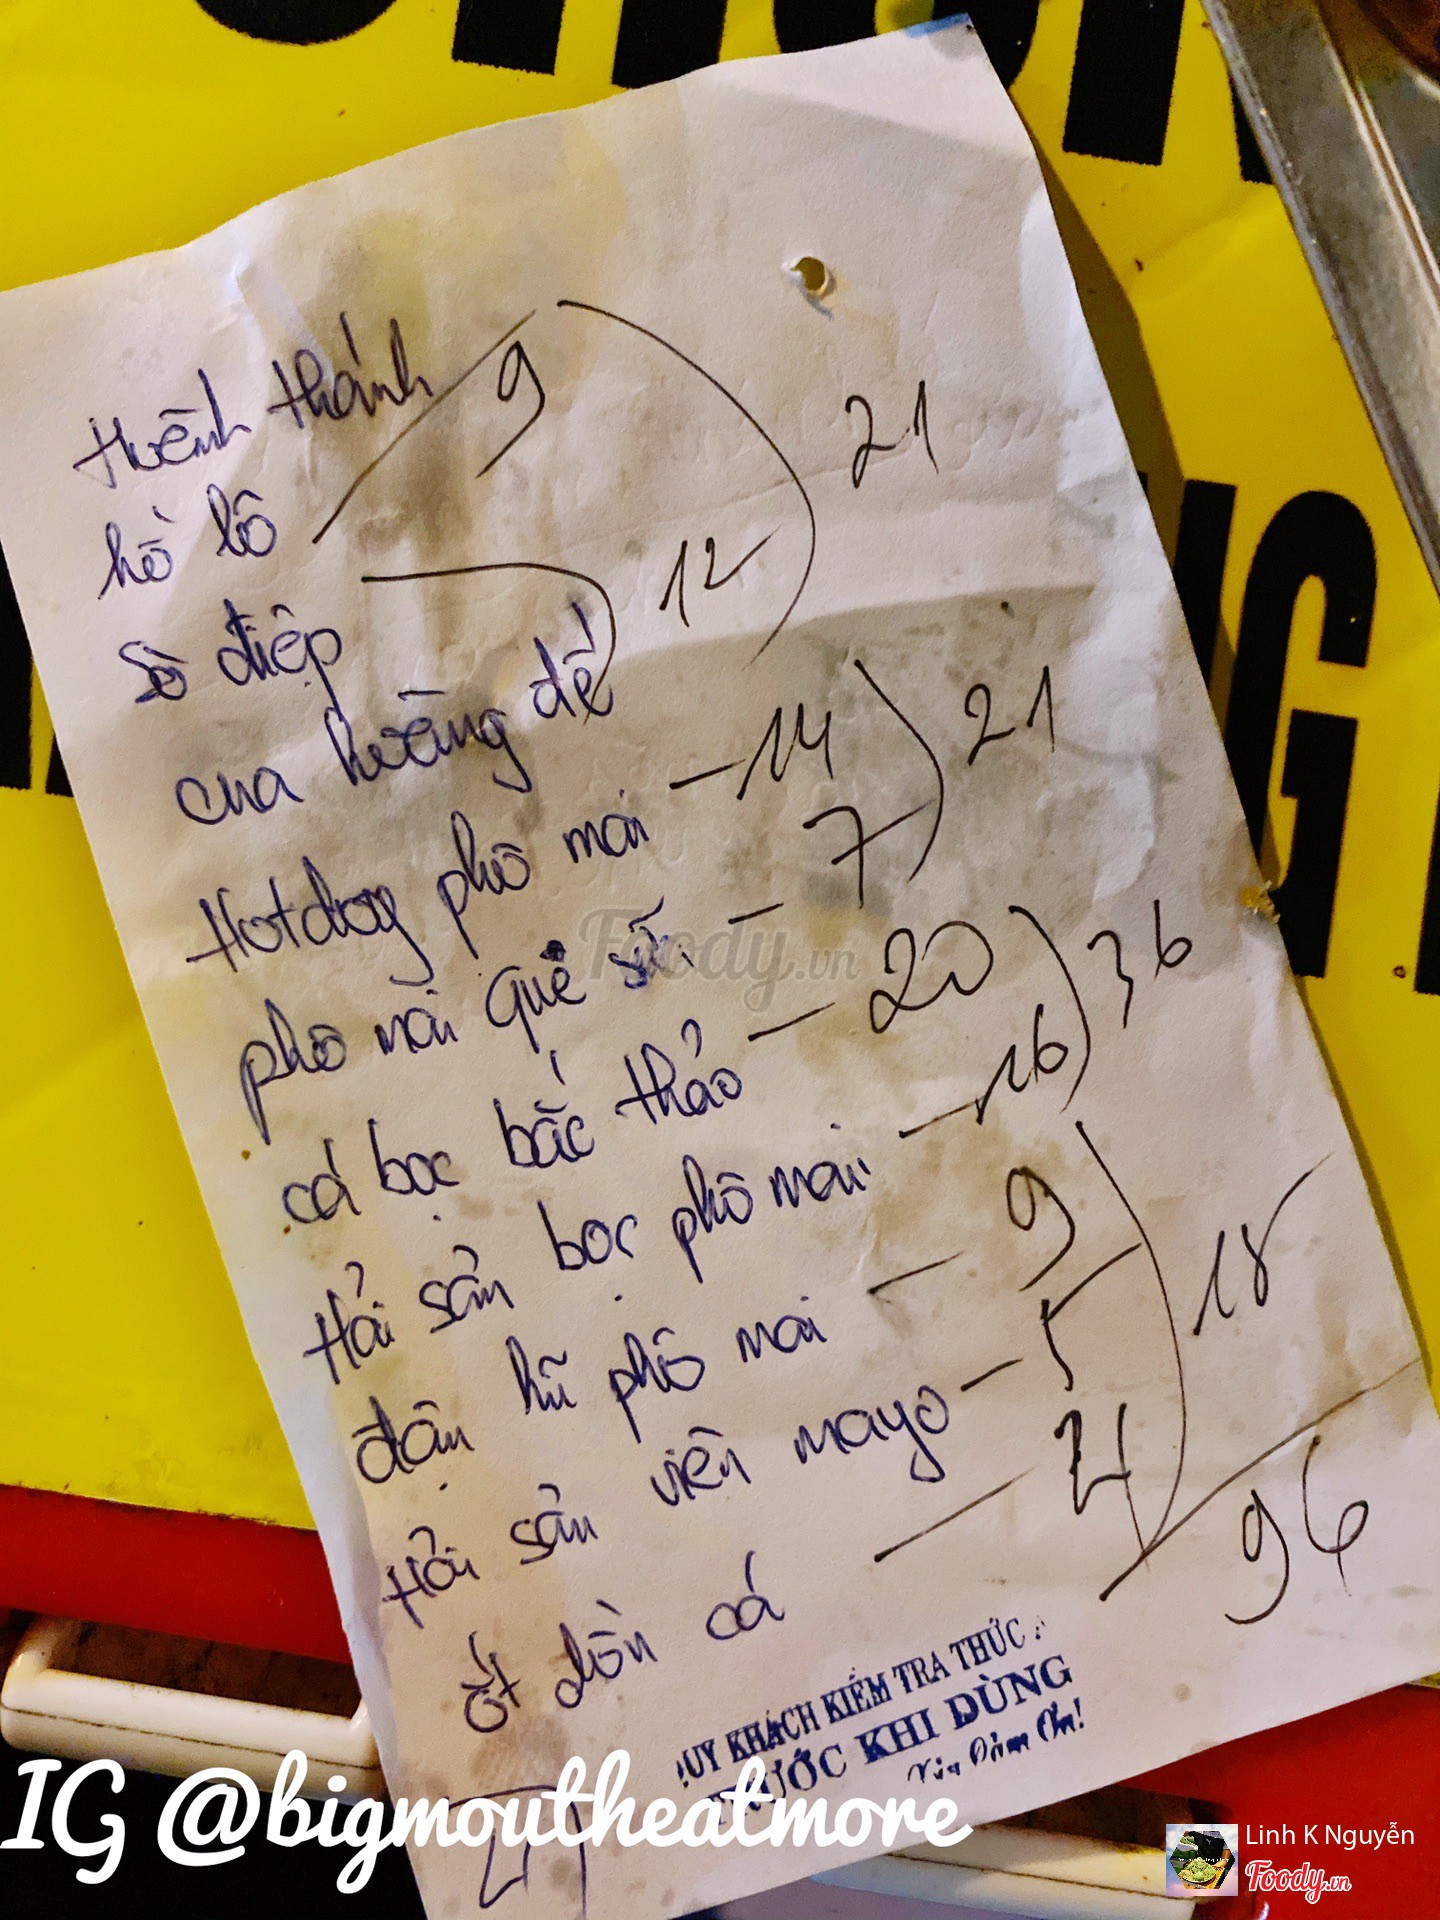 thuênh thánh 9
hồ lô 21
sò điệp 12
cua hoàng đế
Hotdog phô mai - 14 21
phô mai que - 7
cá bọc bắc thảo - 20
Hải sản bọc phô mai - 16 36
đậu hũ phô mai - 9
Hải sản viên mayo - 5 18
ớt dồn cá - 4
96
QUÝ KHÁCH KIỂM TRA THỨC
TRƯỚC KHI DÙNG
Foody.vn
IG @bigmoutheatmore
Linh K Nguyễn
Foody.vn